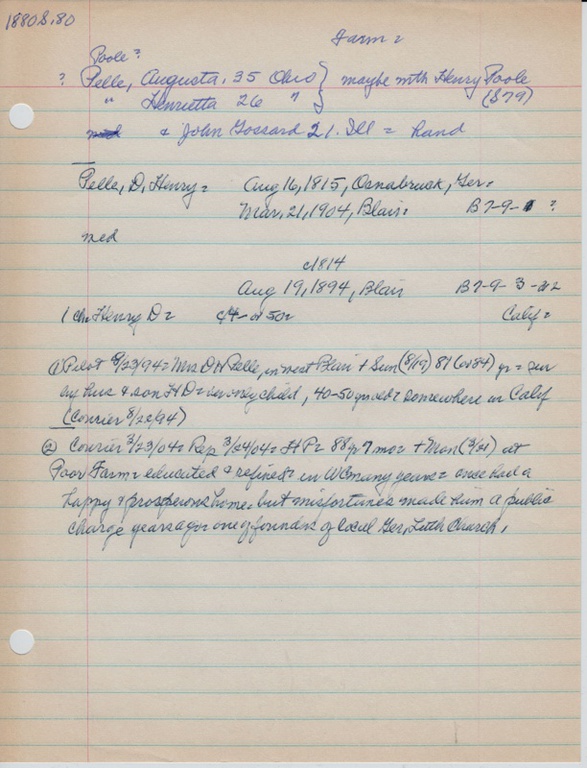 1880S.80
Farm =
Poole?
? Pelle, Augusta. 35 Ohio } maybe mth Henry Poole
" Henrietta 26 " } (S79)
med & John Gossard 21. Ill = hand
Pelle, D. Henry = Aug 16, 1815, Osnabruck, Ger.
Mar. 21, 1904, Blair. B7-9-1 ?
med
c1814
Aug 19, 1894, Blair B7-9-3
1 ch. Henry D = c/4- or 50 = Calif =
① Pilot 8/23/94 = Mrs D H Pelle, in west Blair + Sun (8/19) 81 (or 84) yr = sur
by hus & son H D = her only child, 40-50 yrs old = somewhere in Calif
(Courier 8/22/94)
② Courier 3/23/04 = Rep 3/24/04 = H P = 88 y 7 mo = + Mon (3/21) at
Poor Farm = educated & refined = in WC many years = once had a
happy & prosperous home, but misfortunes made him a public
charge years ago = one of founders of local Ger. Luth Church.